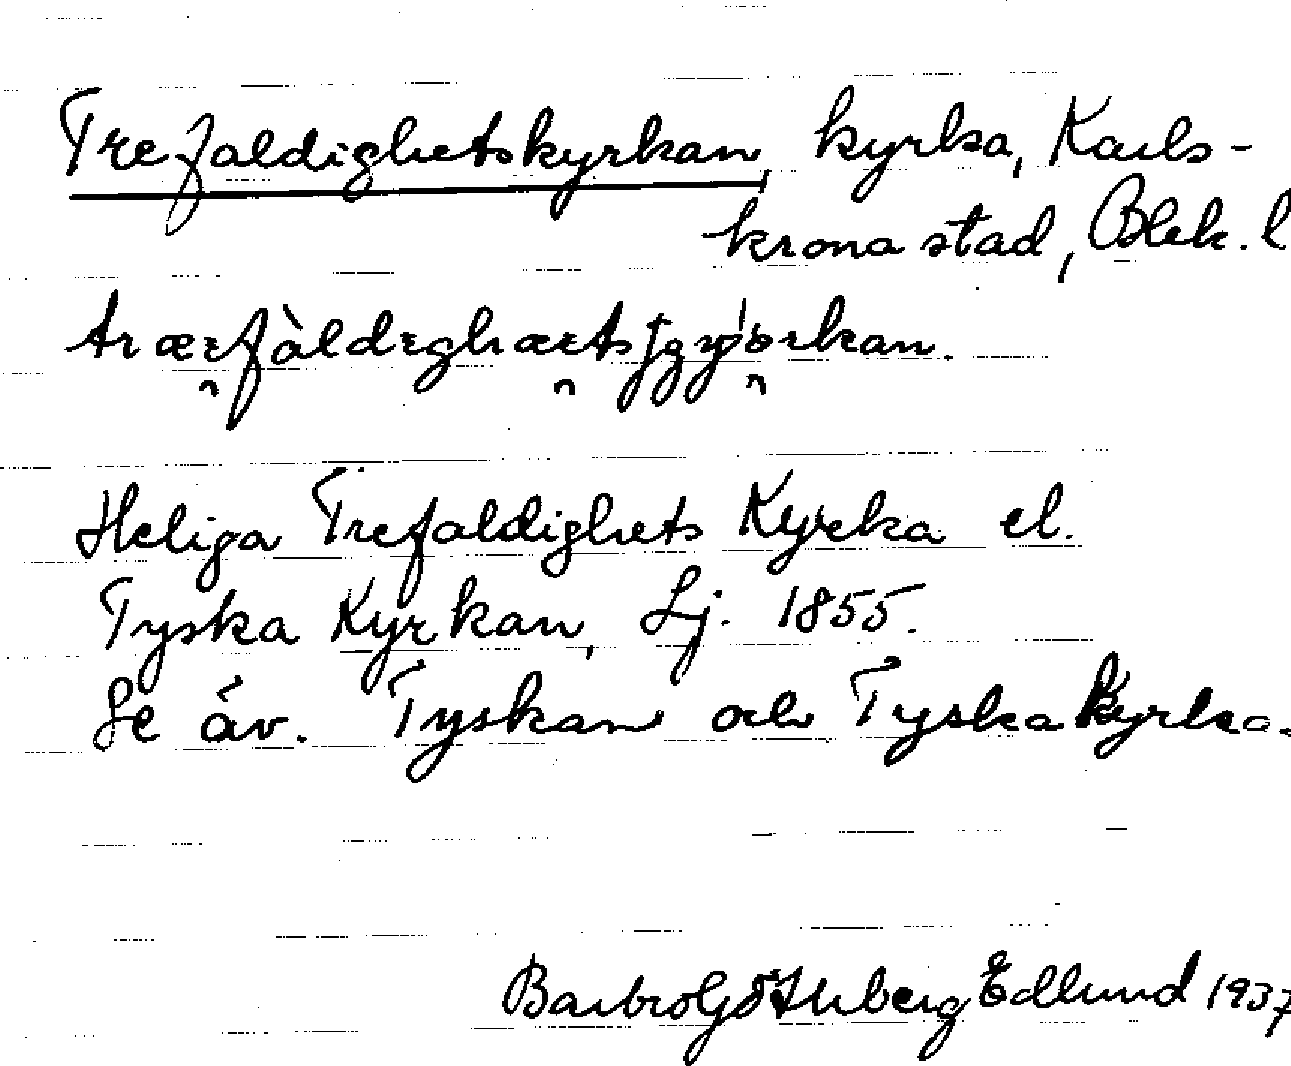 Trefaldighetskyrkan, kyrka, Karls-
krona stad, Blek. l
Heliga Trefaldighets Kyrka el.
Tyska Kyrkan, Lj. 1855.
Se äv. Tyskan och Tyska kyrka.
Barbro Göthberg Edlund 1937